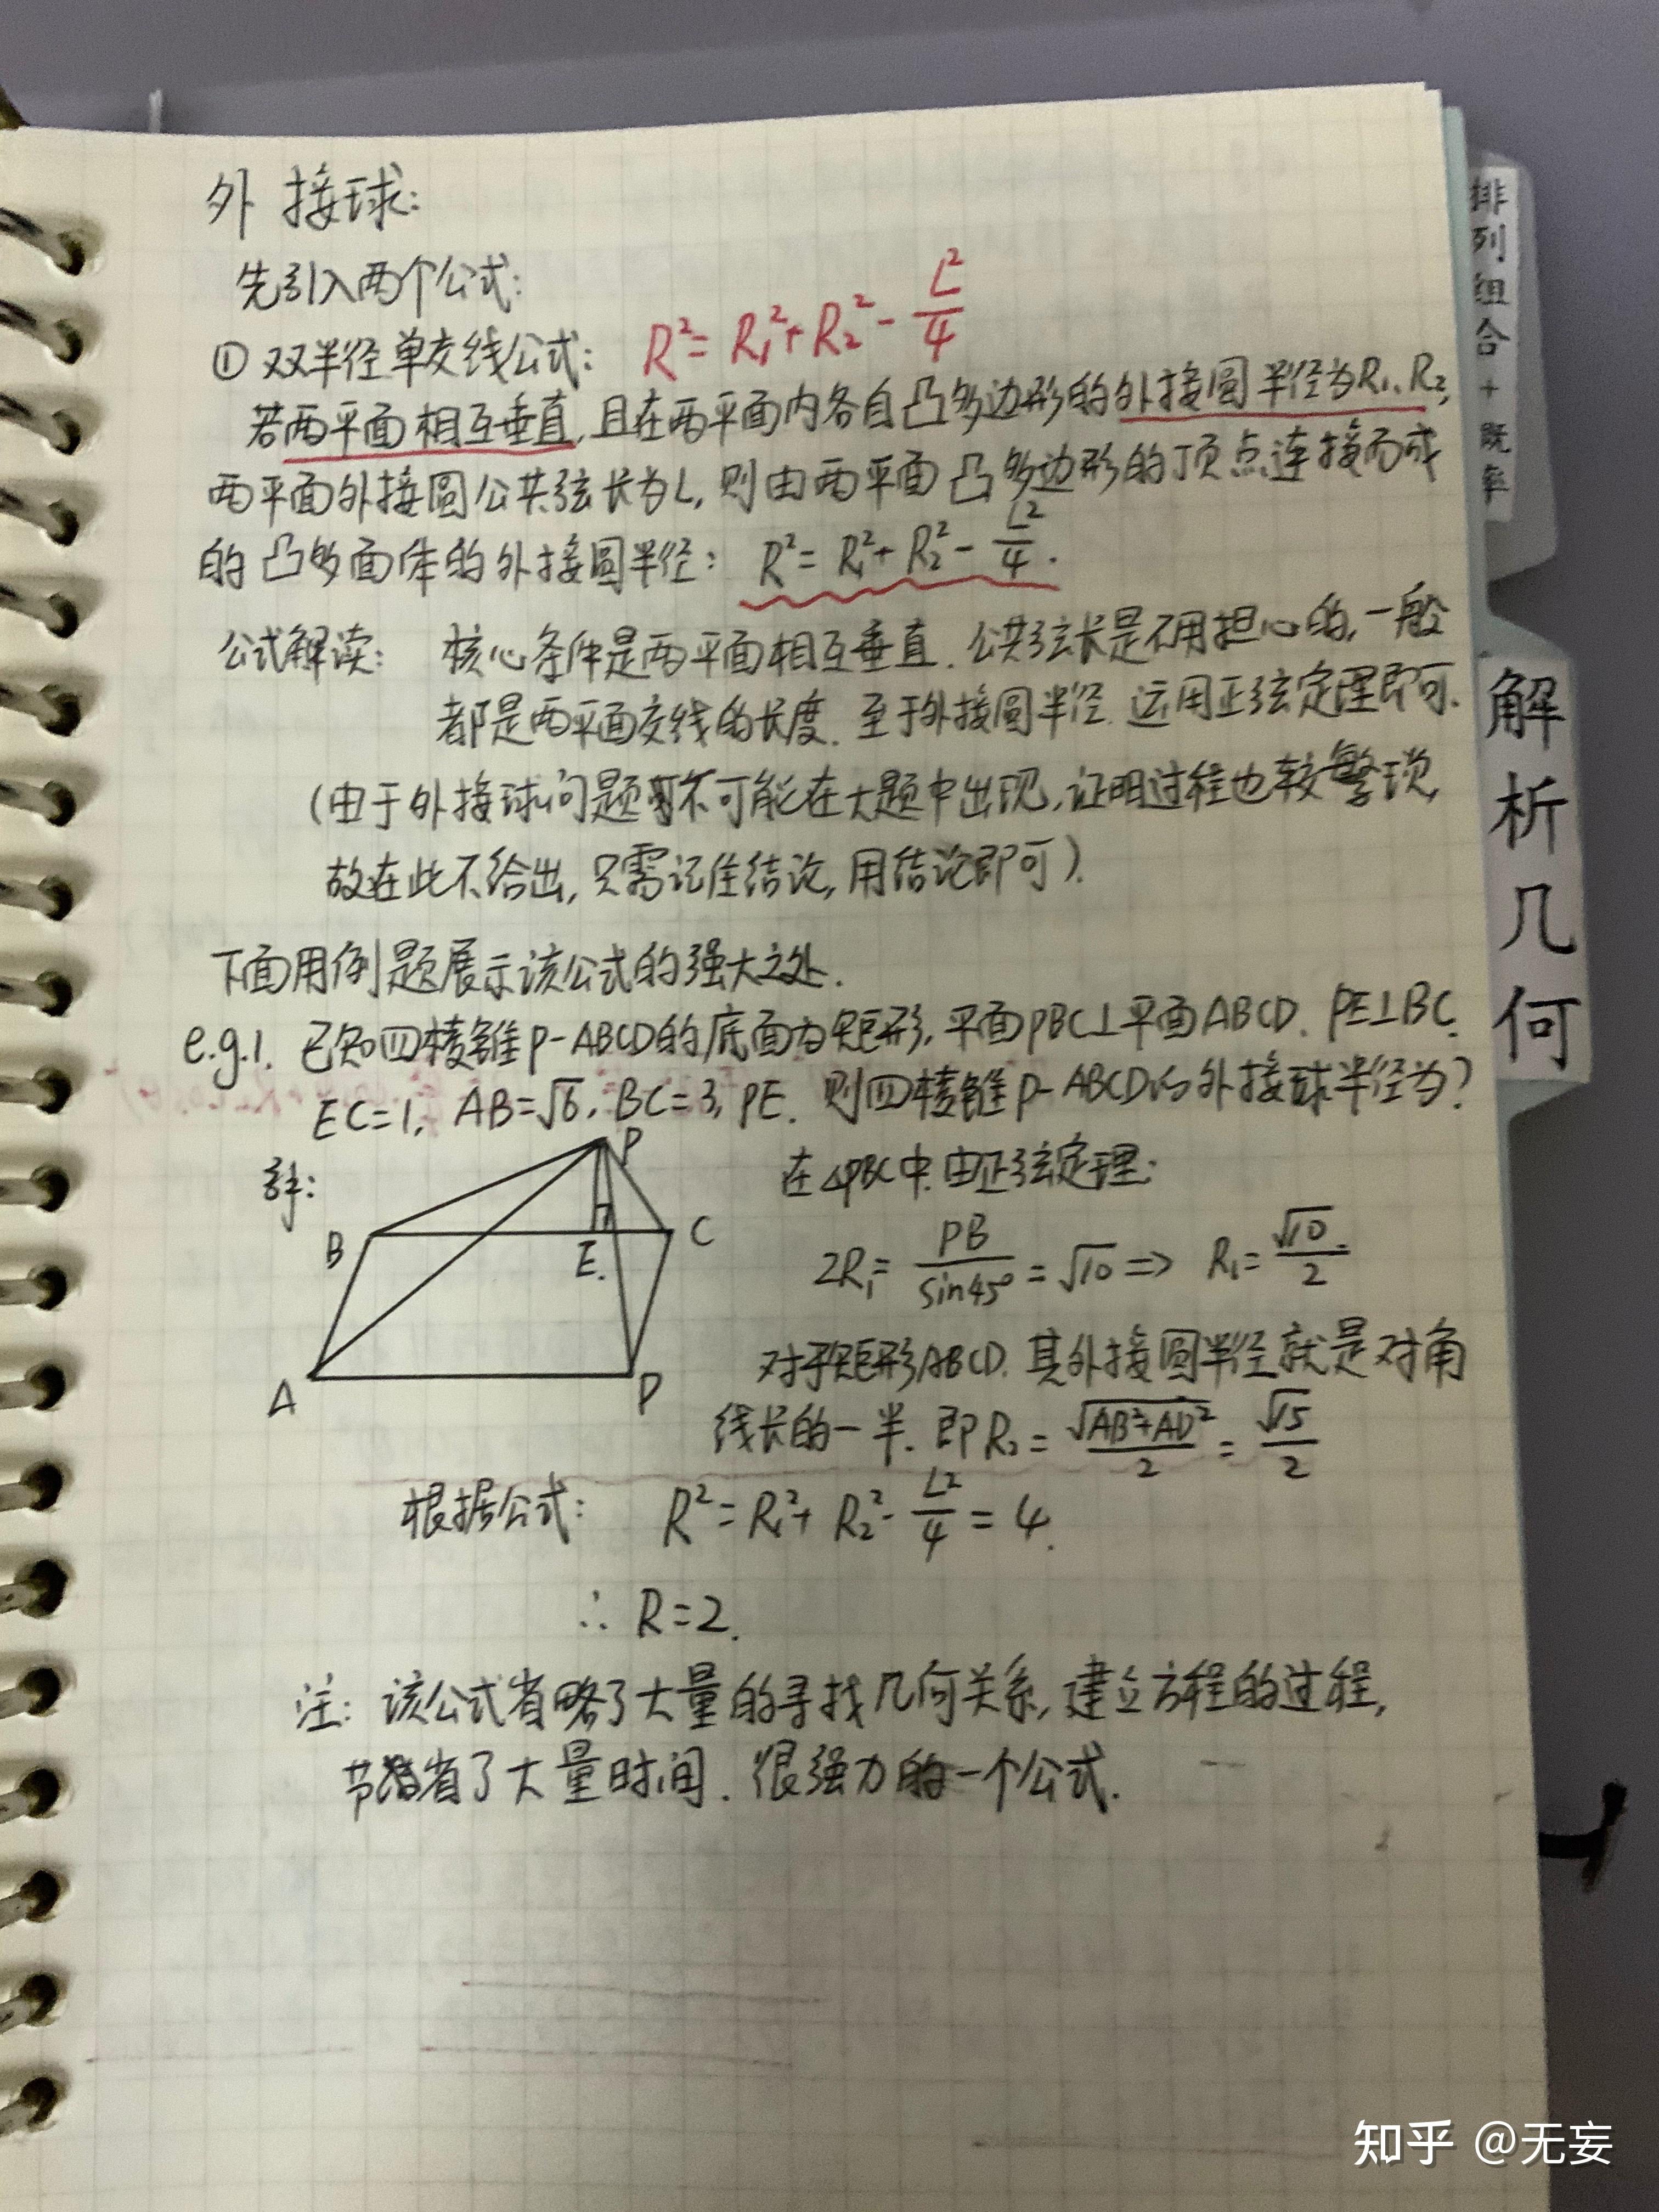 外接球:
先引入两个公式:
① 双半径单交线公式: R²=R₁²+R₂²-L²/4
若两平面相互垂直,且在两平面内各自凸多边形的外接圆半径为R₁、R₂,
两平面外接圆公共弦长为L,则由两平面凸多边形的顶点连接而成
的凸多面体的外接圆半径: R²=R₁²+R₂²-L²/4.
公式解读: 核心条件是两平面相互垂直.公共弦长是不用担心的,一般
都是两平面交线的长度.至于外接圆半径.运用正弦定理即可.
(由于外接球问题不可能在大题中出现,证明过程也较繁琐,
故在此不给出,只需记住结论,用结论即可).
下面用例题展示该公式的强大之处.
e.g.1. 已知四棱锥P-ABCD的底面为矩形,平面PBC⊥平面ABCD. PE⊥BC.
EC=1, AB=√6, BC=3, PE. 则四棱锥P-ABCD的外接球半径为?
解:
P
B
C
E.
A
D
在△PBC中.由正弦定理:
2R₁=PB/sin45°=√10⇒ R₁=√10/2.
对于矩形ABCD.其外接圆半径就是对角
线长的一半.即R₂=√(AB²+AD²)/2=√15/2
根据公式: R²=R₁²+R₂²-L²/4=4.
∴R=2.
注:该公式省略了大量的寻找几何关系,建立方程的过程,
节省了大量时间.很强力的一个公式.
排列组合+概率
解析几何
知乎 @无妄